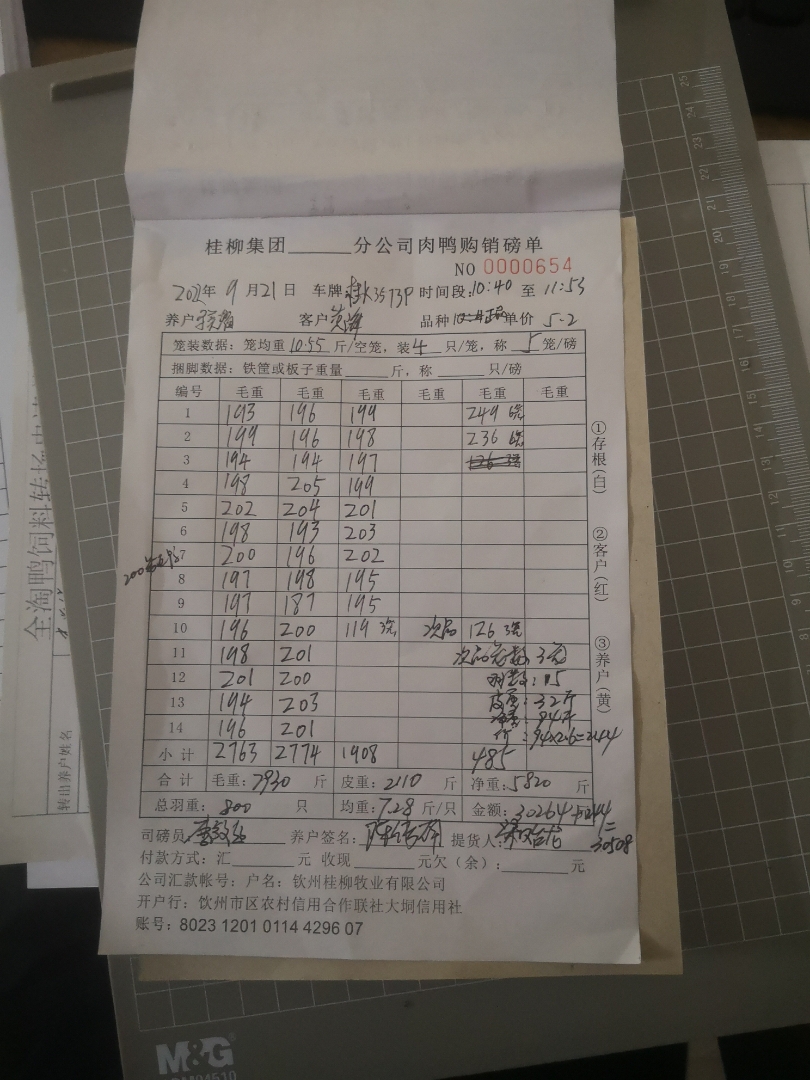 桂柳集团______分公司肉鸭购销磅单
NO 0000654
202 年 9 月 21 日 车牌: 3573P 时间段: 10:40 至 11:53
养户 客户 品种 单价 5-2
笼装数据: 笼均重 10.55 斤/空笼, 装 4 只/笼, 称 5 笼/磅
捆脚数据: 铁筐或板子重量______斤, 称______只/磅
编号 毛重 毛重 毛重 毛重 毛重 毛重
1 193 196 199 249 6笼
2 199 196 198 236 6笼
3 194 194 197 126 3笼
4 198 205 199
5 202 204 201
6 198 193 203
7 200 196 202
8 197 198 195
9 197 187 195
10 196 200 119 3笼 次品 126 3笼
11 198 201 次品笼数 3笼
12 201 200 羽数: 15
13 194 203 皮重: 32斤
14 196 201 净重: 94斤
价: 94×2.6=244
小计 2763 2774 1908 485
合计 毛重: 7930 斤 皮重: 2110 斤 净重: 5820 斤
总羽重: 800 只 均重: 7.28 斤/只 金额: 30264+244=30508
司磅员 养户签名: 提货人:
付款方式: 汇______元 收现______元欠(余): ______元
公司汇款帐号: 户名: 钦州桂柳牧业有限公司
开户行: 钦州市区农村信用合作联社大垌信用社
账号: 8023 1201 0114 4296 07
①存根(白)
②客户(红)
③养户(黄)
全淘鸭饲料转场
转出养户姓名
M&G
25
24
23
22
21
20
19